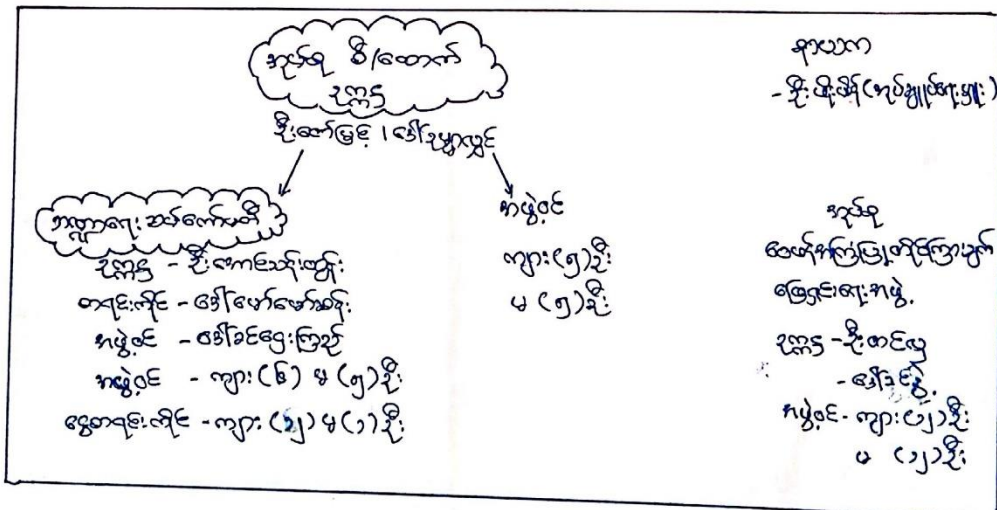 အုပ်စု စီ/ထောက်
ဥက္ကဋ္ဌ
ဦးဇော်မြင့် / ဒေါ်ဥမ္မာလွင်
ဘဏ္ဍာရေး ဆပ်ကော်မတီ
ဥက္ကဋ္ဌ - ဦးအောင်သန်းထွန်း
စာရင်းကိုင် - ဒေါ်မော်မော်ဆန်း
အဖွဲ့ဝင် - ဒေါ်ခင်ဌေးကြည်
အဖွဲ့ဝင် - ကျား (၆) မ (၅) ဦး
ငွေစာရင်းကိုင် - ကျား (၁၂) မ (၁) ဦး
အဖွဲ့ဝင်
ကျား (၅) ဦး
မ (၅) ဦး
နာယက
- ဦးစိုးမိန် (အုပ်ချုပ်ရေးမှူး)
အုပ်စု
ဝေဖန်အကြံပြုတိုင်ကြားချက်
ဖြေရှင်းရေးအဖွဲ့
ဥက္ကဋ္ဌ - ဦးတင်လှ
အဖွဲ့ဝင် - ကျား (၁၂) ဦး
မ (၁၂) ဦး